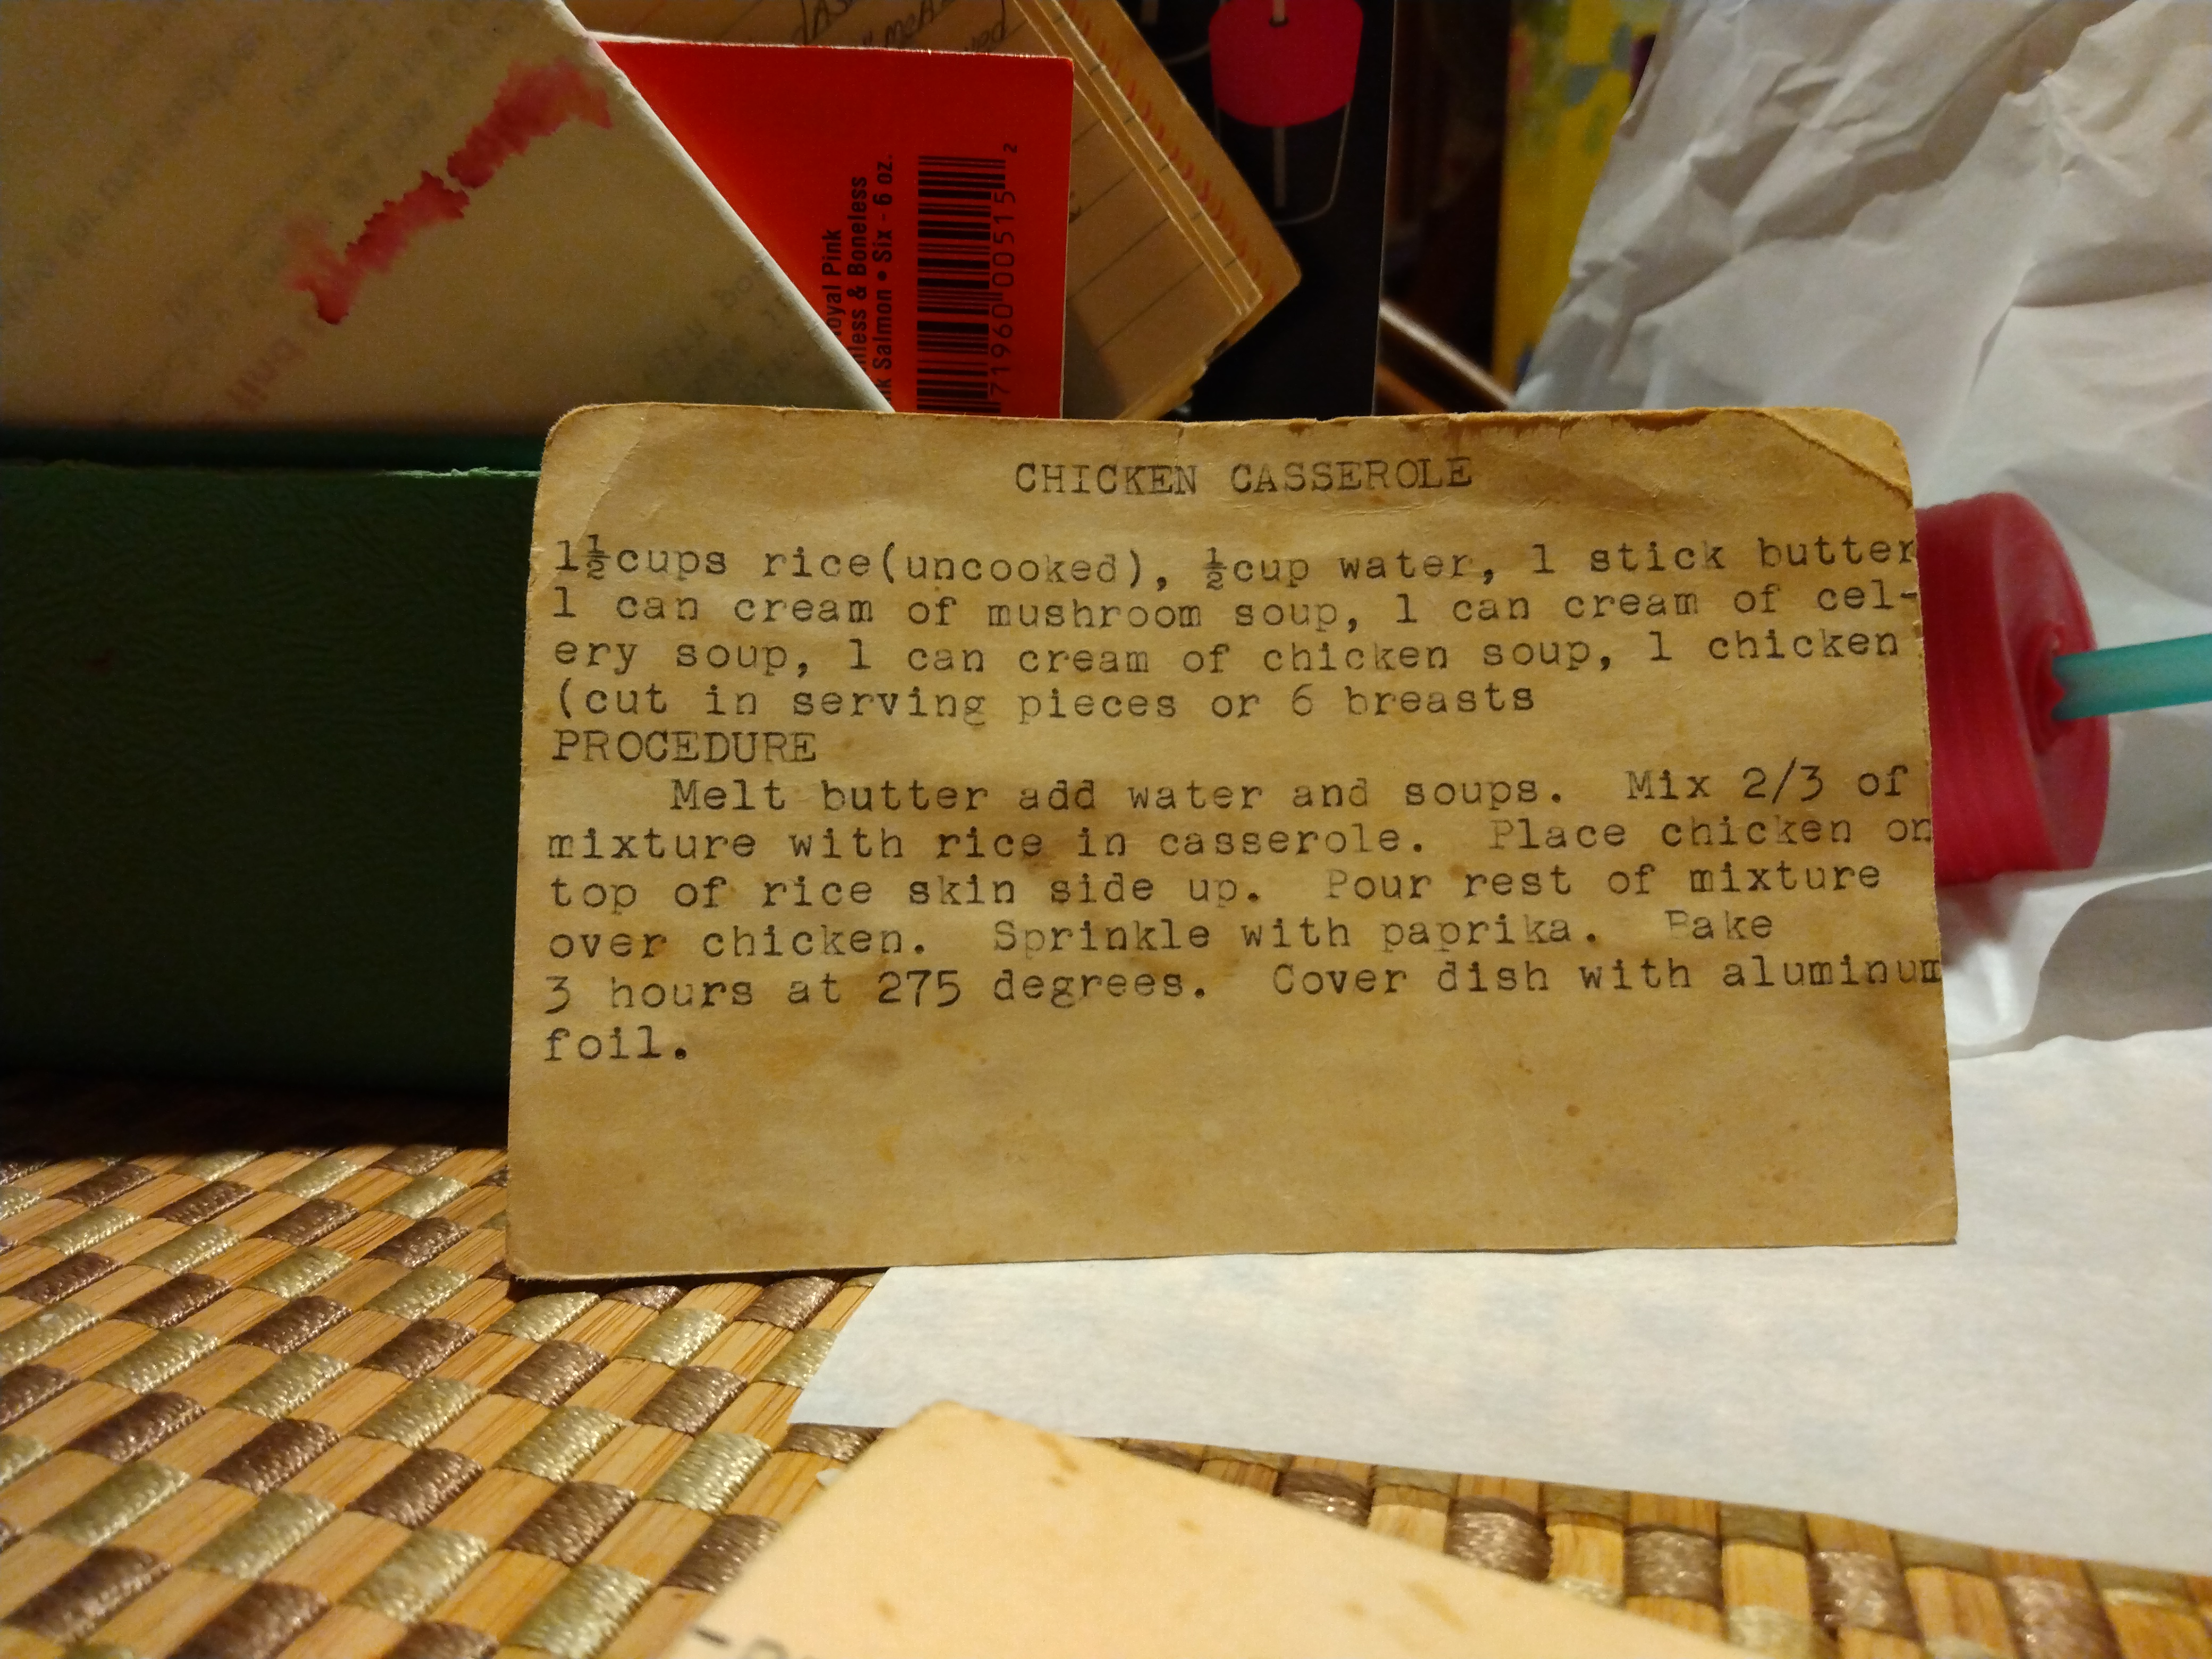 oyal Pink
less & Boneless
k Salmon • Six - 6 oz.
71960 00515 2
CHICKEN CASSEROLE
1½cups rice(uncooked), ½cup water, 1 stick butter
1 can cream of mushroom soup, 1 can cream of cel-
ery soup, 1 can cream of chicken soup, 1 chicken
(cut in serving pieces or 6 breasts
PROCEDURE
Melt butter add water and soups. Mix 2/3 of
mixture with rice in casserole. Place chicken on
top of rice skin side up. Pour rest of mixture
over chicken. Sprinkle with paprika. Bake
3 hours at 275 degrees. Cover dish with aluminum
foil.